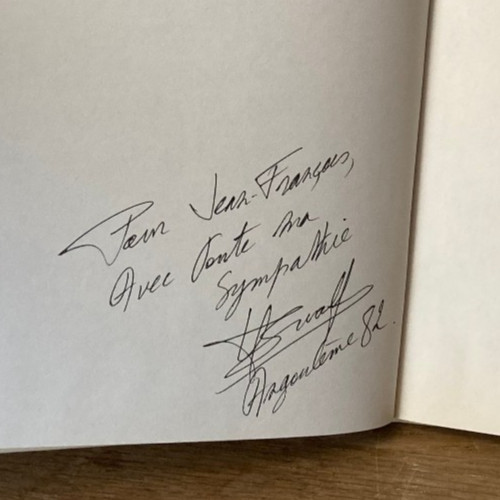 Pour Jean-François,
Avec toute ma
sympathie
Angoulême 82.